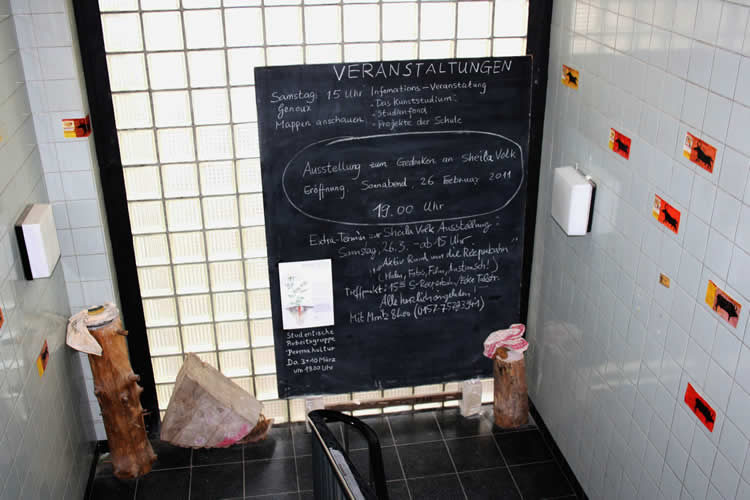 VERANSTALTUNGEN
Samstag, 15 Uhr Infomations-Veranstatung
- Das Kunststudium
- Studienfond
Mappen anschauen - Projekte der Schule
Ausstellung zum Gedenken an Sheila Volk
Eröffnung, Sonnabend, 26 Februar 2011
19.00 Uhr
Extra-Termin zur Sheila Volk Ausstellung:
Samstag, 26.3. - ab 15 Uhr
"Aktiv Rund um die Reeperbahn"
(Malen, Foto's, Film, Austausch!)
Treffpunkt: 15
Alle herzlich eingeladen
Mit
Studentische
Arbeitsgruppe
Permakultur
Do 3+10 März
um 19.00 Uhr